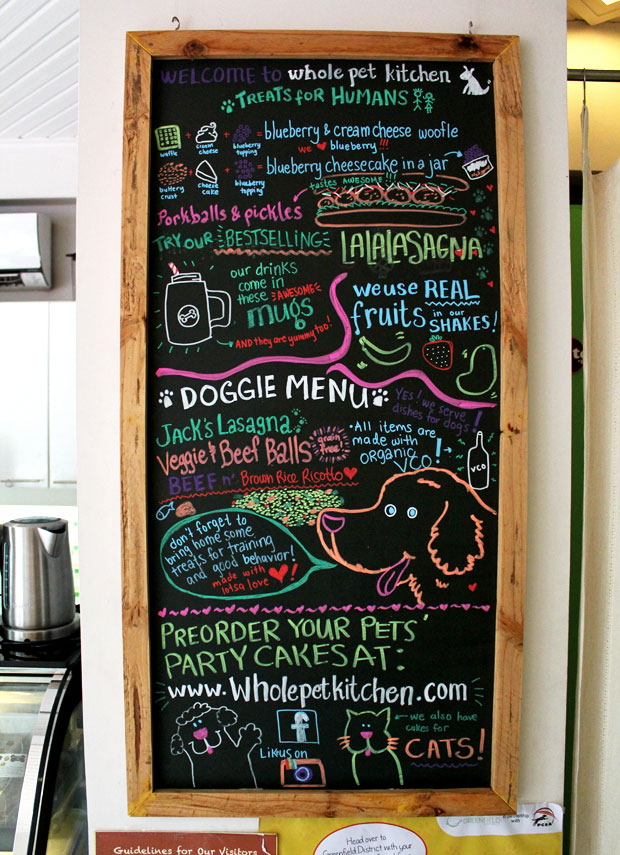 WELCOME to whole pet kitchen
TREATS for HUMANS
waffle + cream cheese + blueberry topping = blueberry & cream cheese woofle
we blueberry!!!
buttery crust + cheese cake + blueberry topping
blueberry cheesecake in a jar
tastes AWESOME!!!
Porkballs & pickles
TRY OUR BESTSELLING LALALASAGNA
our drinks
come in
these AWESOME
mugs
AND they are yummy too!
we use REAL
fruits in our
SHAKES!
DOGGIE MENU
Yes! we serve
dishes for dogs!
Jack's Lasagna
Veggie & Beef Balls grain free!
BEEF n' Brown Rice Risotto
• All items are
made with
ORGANIC
VCO!
VCO
don't forget to
bring home some
treats for training
and good behavior!
made with
lotsa love!
PREORDER YOUR PETS'
PARTY CAKES AT:
www.Wholepetkitchen.com
f
Like us on
we also have
cakes for
CATS!
Guidelines for Our Visitors
Head over to
Greenfield District with your